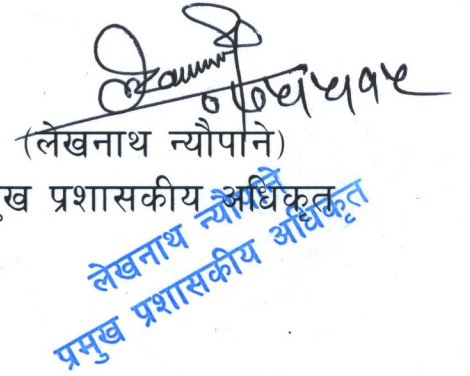 (लेखनाथ न्यौपाने)
ख प्रशासकीय अधिकृत
लेखनाथ न्यौपाने
प्रमुख प्रशासकीय अधिकृत